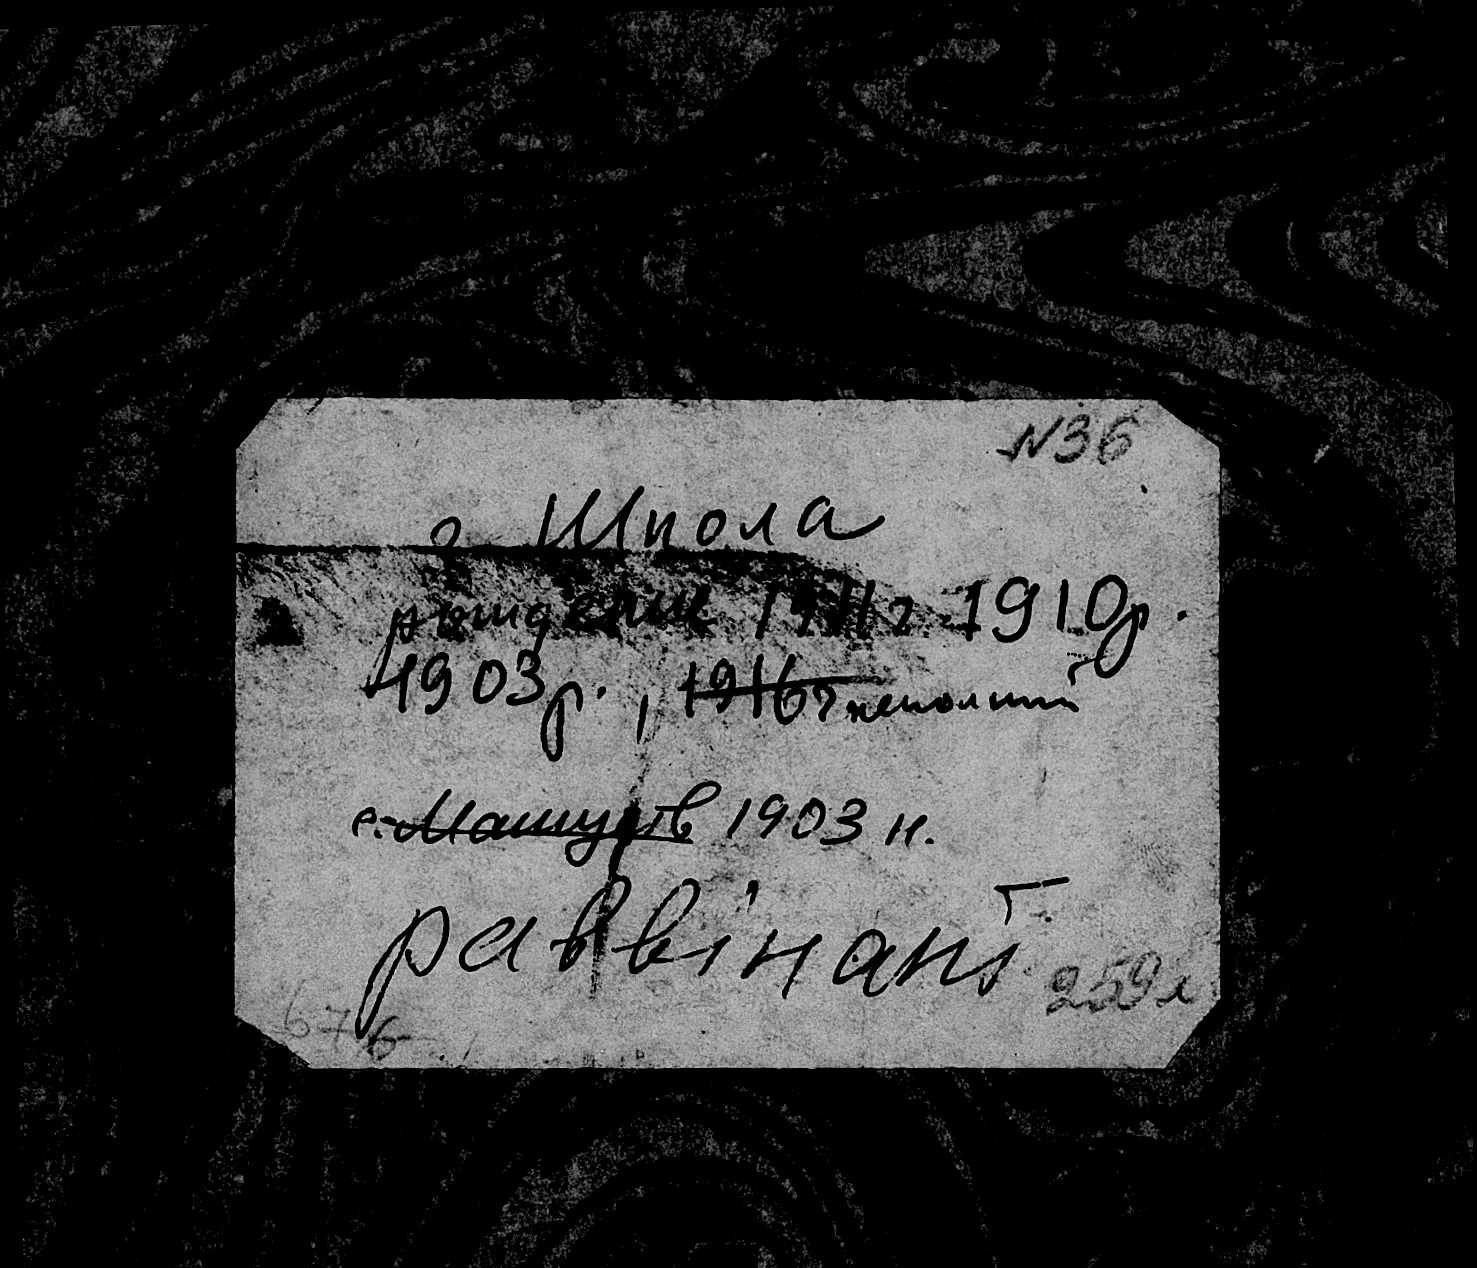 N36
г Шпола
рождение 1911г 1910р.
1903р., 1916г неполный
с. Машуров 1903 н.
раввінат
259л
676